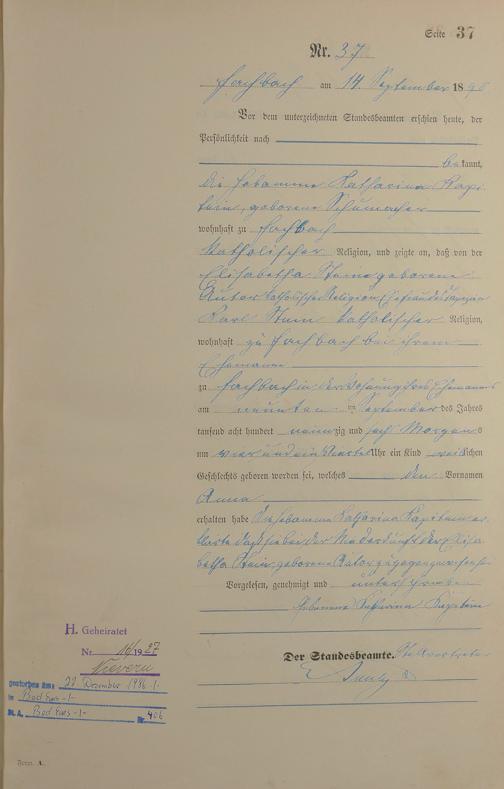 Seite 37
Nr. 37
Fachbach am 14. September 1896
Vor dem unterzeichneten Standesbeamten erschien heute, der
Persönlichkeit nach
bekannt,
die Hebamme Katharina Kapi
tain, geborene Schumacher
wohnhaft zu Fachbach
katholischer Religion, und zeigte an, daß von der
Elisabetha Stein geborene
katholischer Religion, Ehefrau des
Karl Stein katholischer Religion,
wohnhaft zu Fachbach bei ihrem
Ehemanne
zu Fachbach in der Wohnung des Ehemannes
am neunten September des Jahres
tausend acht hundert neunzig und sechs Morgens
um vier und ein viertel Uhr ein Kind weiblichen
Geschlechts geboren worden sei, welches den Vornamen
Anna
erhalten habe Die Hebamme Katharina Kapitain er
klärte daß sie bei der Niederkunft der Elisa
betha Stein geborene zugegen gewesen sei
Vorgelesen, genehmigt und unterschrieben
Hebamme Katharina Kapitain
Der Standesbeamte.
H. Geheiratet
Nr. 14/1927
Nievern
gestorben am: 22. Dezember 1986
in Bad Ems -1-
St. A. Bad Ems -1- Nr. 406
Form. A.